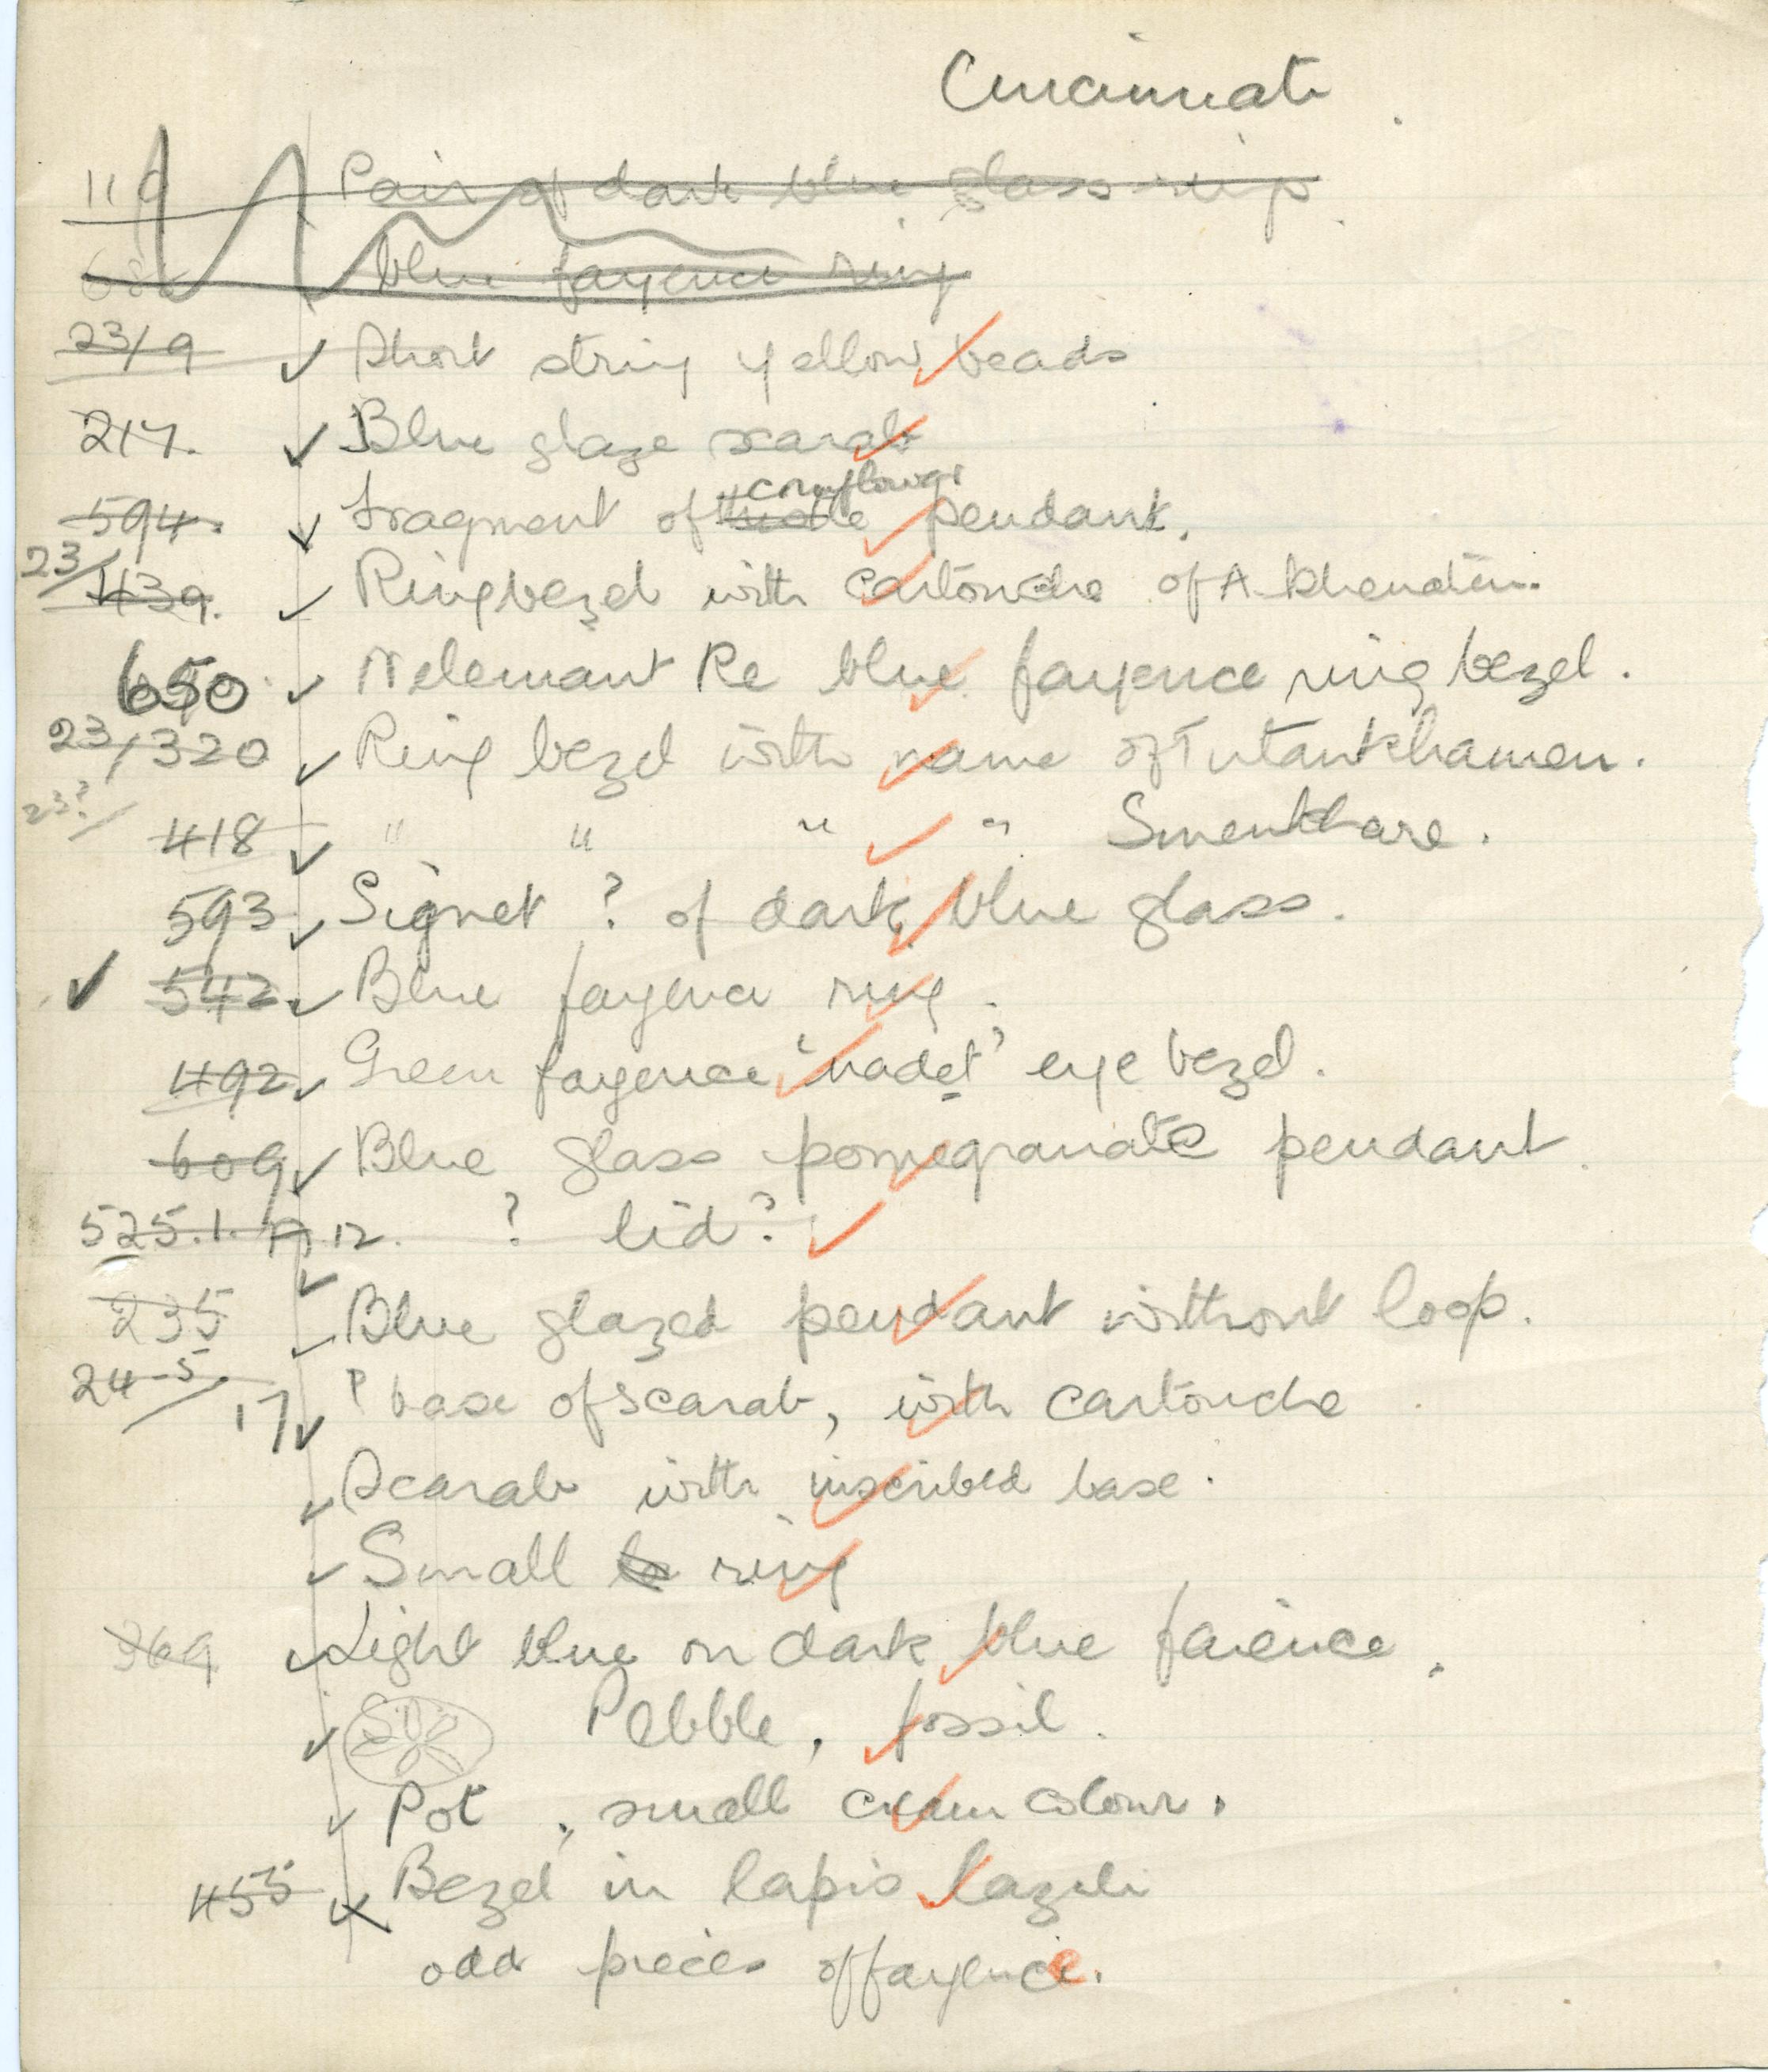 Cincinnati
119 Pair of dark blue glass rings
blue fayence ring
23/9 ✓ Short string yellow beads
217. ✓ Blue glaze scarab
cornflower
594. ✓ fragment of thistle pendant.
23/439. ✓ Ringbezel with cartouche of Akhenaten.
650 ✓ Re blue fayence ring bezel.
23/320 ✓ Ring bezel with name of Tutankhamen.
23?/418 ✓ " " " " Smenkhare.
593 ✓ Signet ? of dark blue glass.
✓ 542 ✓ Blue fayence ring.
492 ✓ Green fayence 'uadet' eye bezel.
609 ✓ Blue glass pomegranate pendant.
525.1. 12. ? lid? ✓
235 ✓ Blue glazed pendant without loop.
24-5/17 ✓ ? base of scarab, with cartouche
✓ Scarab with inscribed base.
✓ Small ring
369 ✓ Light blue on dark blue faience.
✓ Pebble, fossil.
✓ Pot, small cream colour.
455 Bezel in lapis lazuli
odd pieces of fayence.